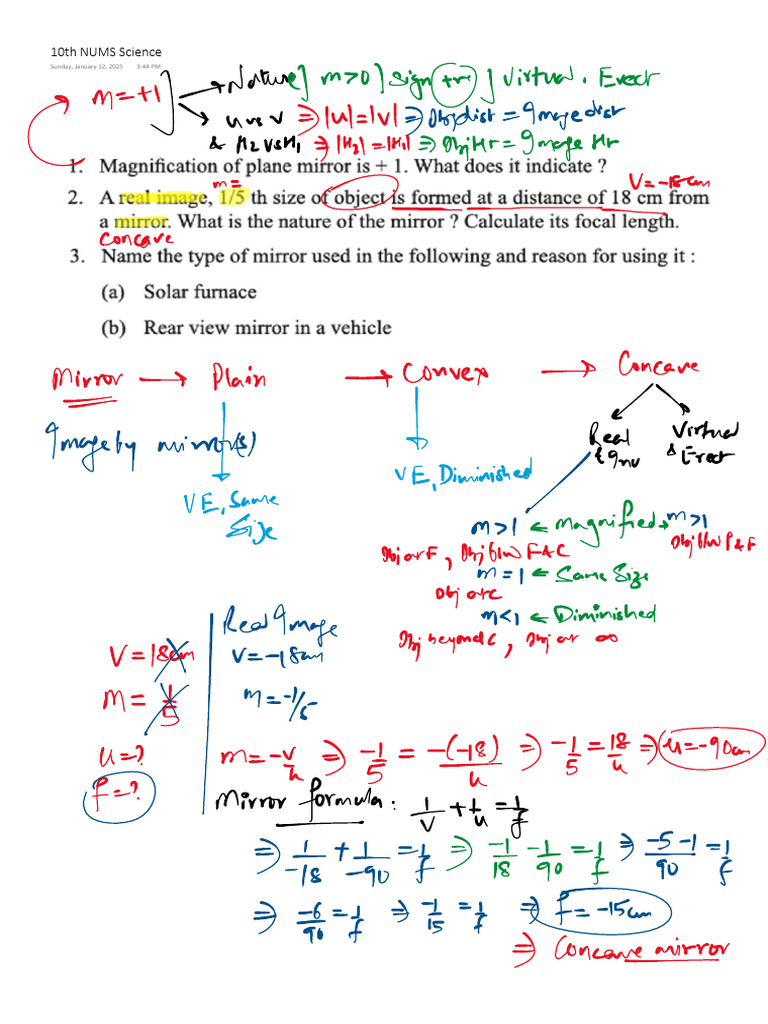 10th NUMS Science
Sunday, January 12, 2025 3:44 PM
m = +1 ] → Nature ] m>0 ] Sign +ve ] Virtual. Erect
→ u vs v ⇒ |u| = |v| ⇒ Obj dist = Image dist
& H2 vs H1 ⇒ |H2| = |H1| ⇒ Obj Hr = Image Hr
1. Magnification of plane mirror is + 1. What does it indicate ?
m= V = -18cm
2. A real image, 1/5 th size of object is formed at a distance of 18 cm from
a mirror. What is the nature of the mirror ? Calculate its focal length.
Concave
3. Name the type of mirror used in the following and reason for using it :
(a) Solar furnace
(b) Rear view mirror in a vehicle
Mirror → Plain → Convex → Concave
Image by mirror(s)
Real & Inv
Virtual & Erect
VE, Same Size
VE, Diminished
m>1 ← Magnified → m>1
Obj at F, Obj b/w F & C
Obj b/w P & F
m = 1 ← Same Size
Obj at C
m<1 ← Diminished
Obj beyond C, Obj at ∞
Real Image
V = 18cm
V = -18cm
m = 1/5
m = -1/5
u = ?
f = ?
m = -v/u ⇒ -1/5 = -(-18)/u ⇒ -1/5 = 18/u ⇒ u = -90cm
Mirror formula: 1/V + 1/u = 1/f
⇒ 1/-18 + 1/-90 = 1/f ⇒ -1/18 - 1/90 = 1/f ⇒ -5-1/90 = 1/f
⇒ -6/90 = 1/f ⇒ -1/15 = 1/f ⇒ f = -15cm
⇒ Concave mirror